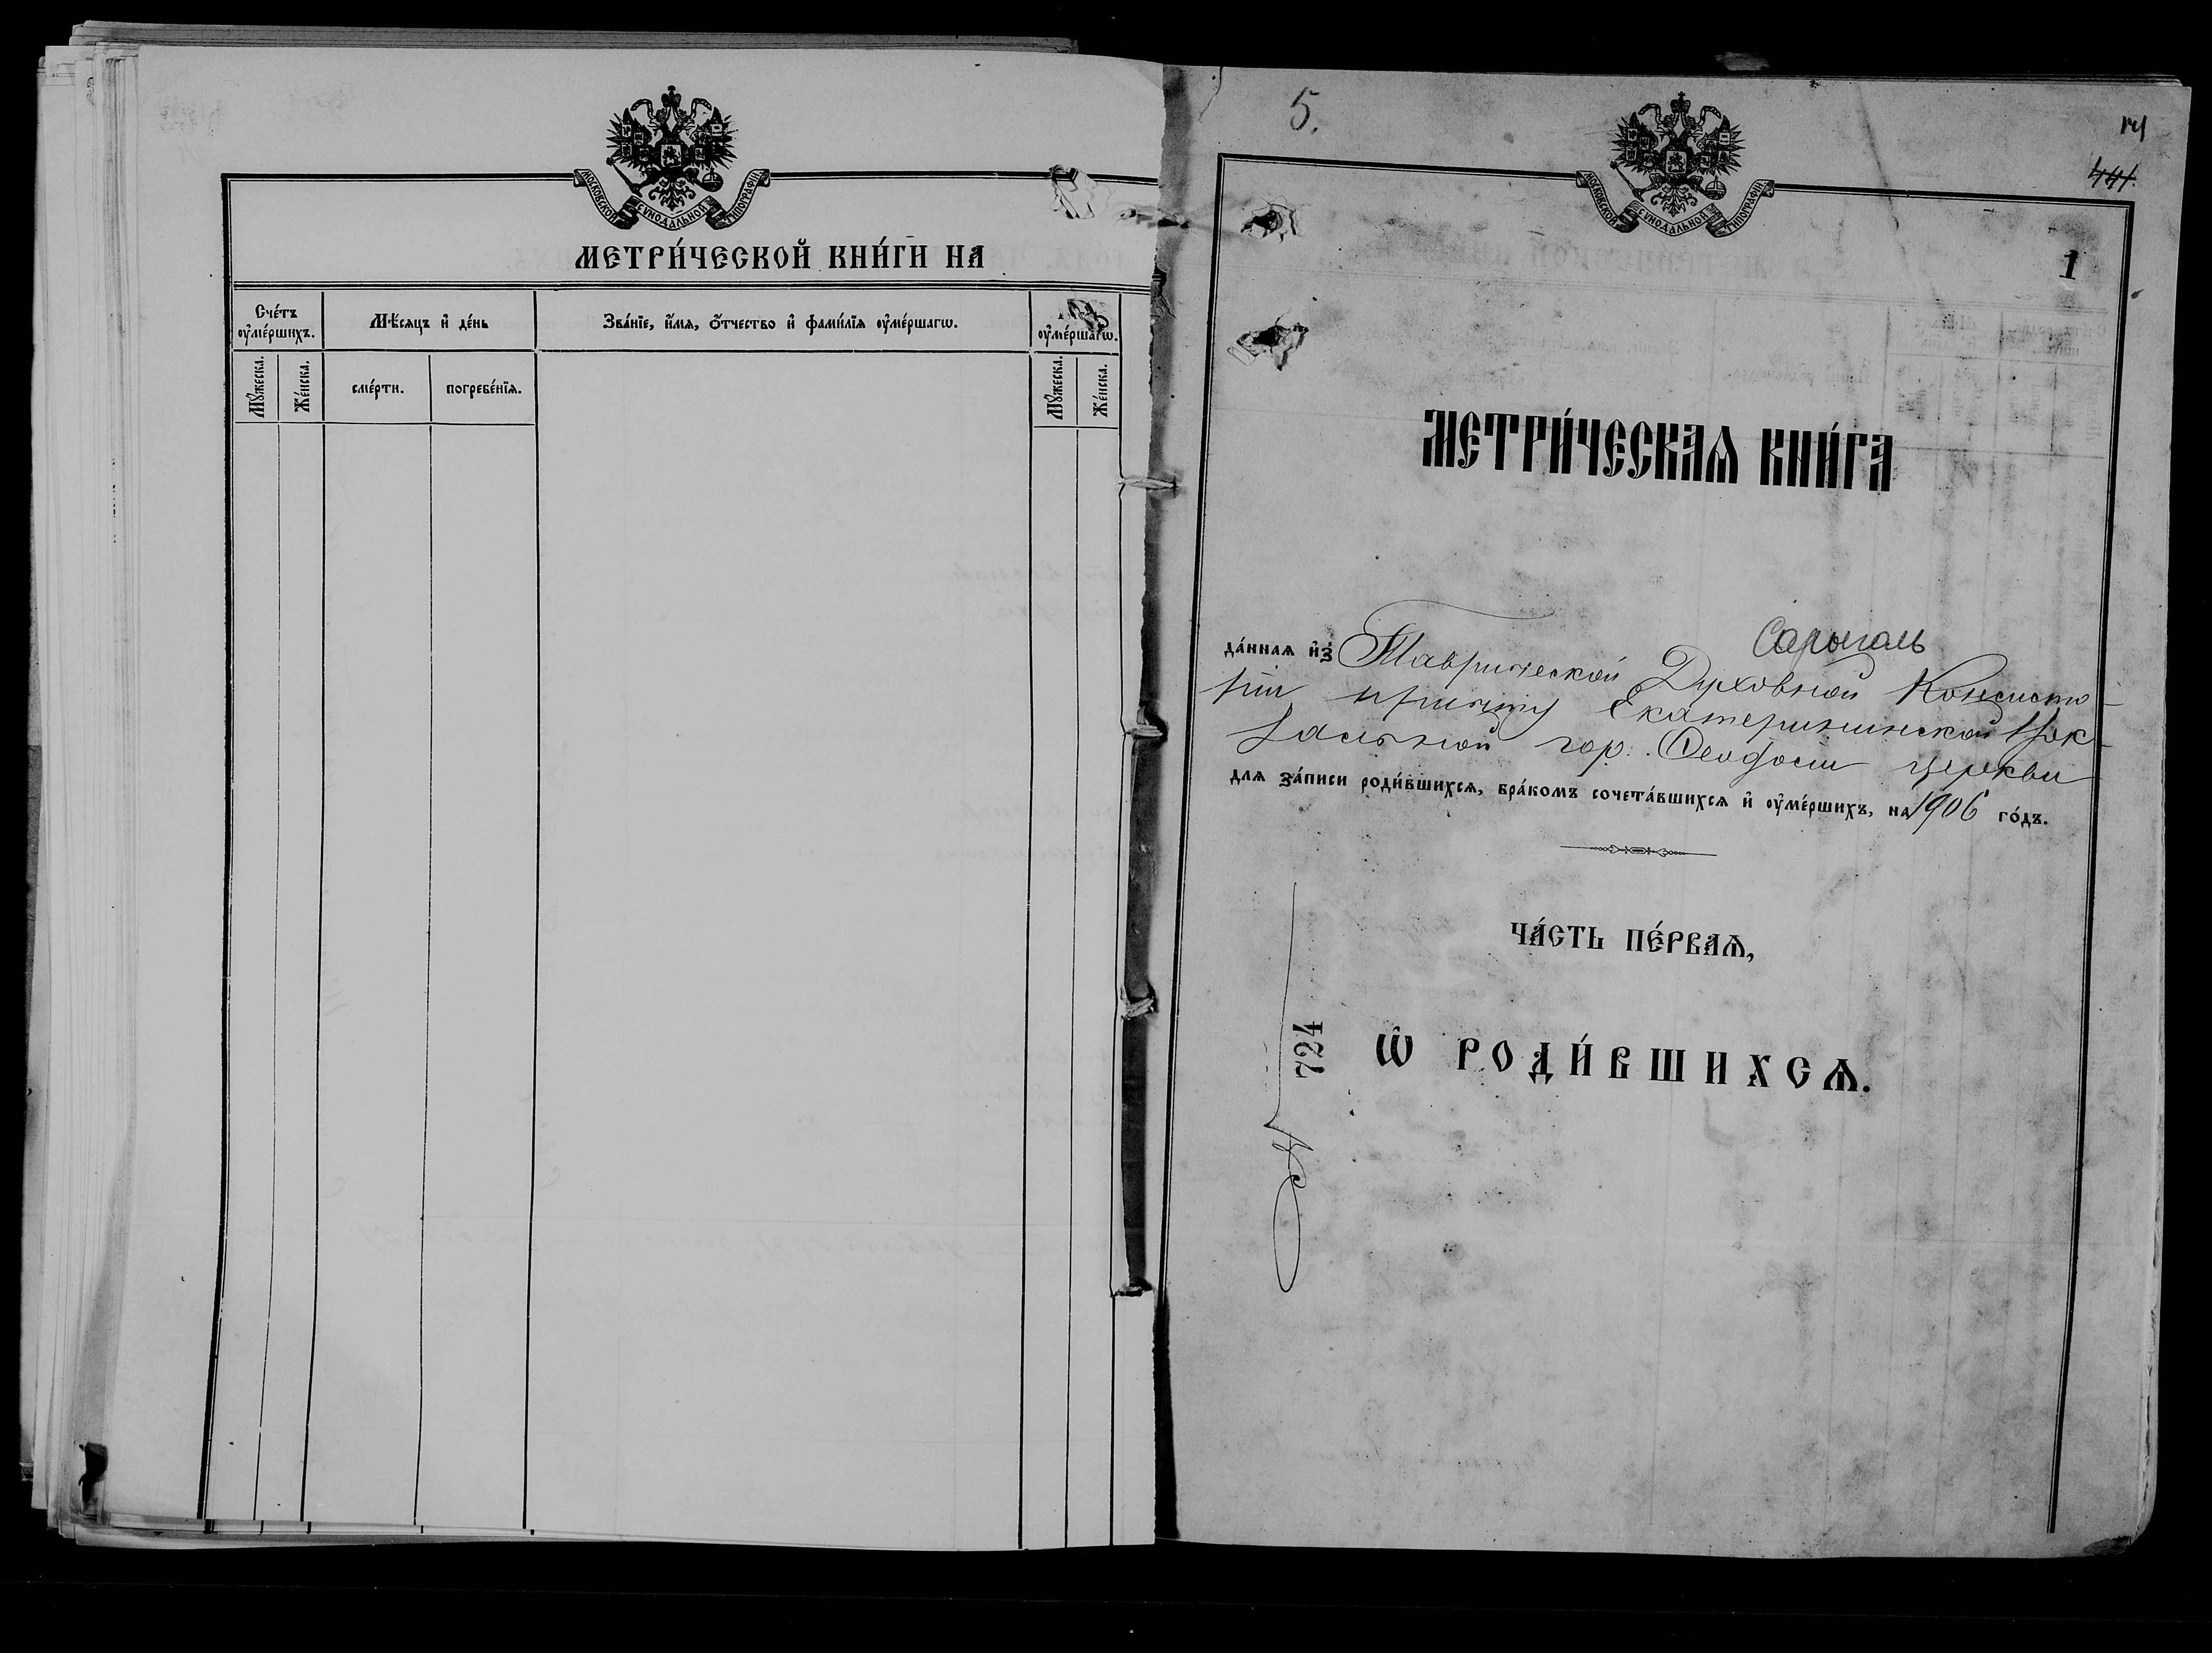 МОСКОВСКОЙ СѴНОДАЛЬНОЙ ТИПОГРАФІИ
МЕТРИ́ЧЕСКОЙ КНИ́ГИ НА
Сче́тъ ᲂу҆ме́ршихъ.
Мѣ́сяцъ и҆ де́нь
Зва́нїе, и҆́мѧ, ѻ҆́тчество и҆ фами́лїѧ ᲂу҆ме́ршагѡ.
ᲂу҆ме́ршагѡ.
Мꙋ́жеска.
Же́нска.
сме́рти.
погребе́нїѧ.
Мꙋ́жеска.
Же́нска.
5.
141
441.
МОСКОВСКОЙ СѴНОДАЛЬНОЙ ТИПОГРАФІИ
1
МЕТРИ́ЧЕСКАѦ КНИ́ГА
Сарыголь
да́ннаѧ и҆з̾ Таврической Духовной Консисто-
ріи причту Екатерининской Вок-
зальной гор. Ѳеодосіи церкви
длѧ за́писи роди́вшихсѧ, бра́комъ сочета́вшихсѧ и҆ ᲂу҆ме́ршихъ, на 1906 го́дъ.
ЧА́СТЬ ПЕ́РВАѦ,
724
Ѡ҆ РОДИ́ВШИХСѦ.